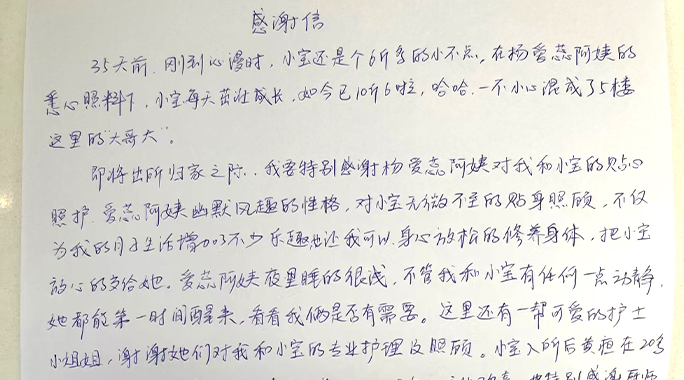 感谢信
35天前,刚到心漫时,小宝还是个6斤多的小不点,在杨爱蕊阿姨的
悉心照料下,小宝每天茁壮成长,如今已10斤6啦,哈哈,一不小心混成了5楼
这里的"大哥大"。
即将出所归家之际,我要特别感谢杨爱蕊阿姨对我和小宝的贴心
照护,爱蕊阿姨幽默风趣的性格,对小宝无微不至的贴身照顾,不仅
为我的月子生活增加了不少乐趣也还我可以身心放松的修养身体,把小宝
放心的交给她。爱蕊阿姨夜里睡的很浅,不管我和小宝有任何一点动静,
她都能第一时间醒来,看看我俩是否有需要。这里还有一帮可爱的护士
小姐姐,谢谢她们对我和小宝的专业护理及照顾。小宝入所后黄疸在20多
也特别感谢